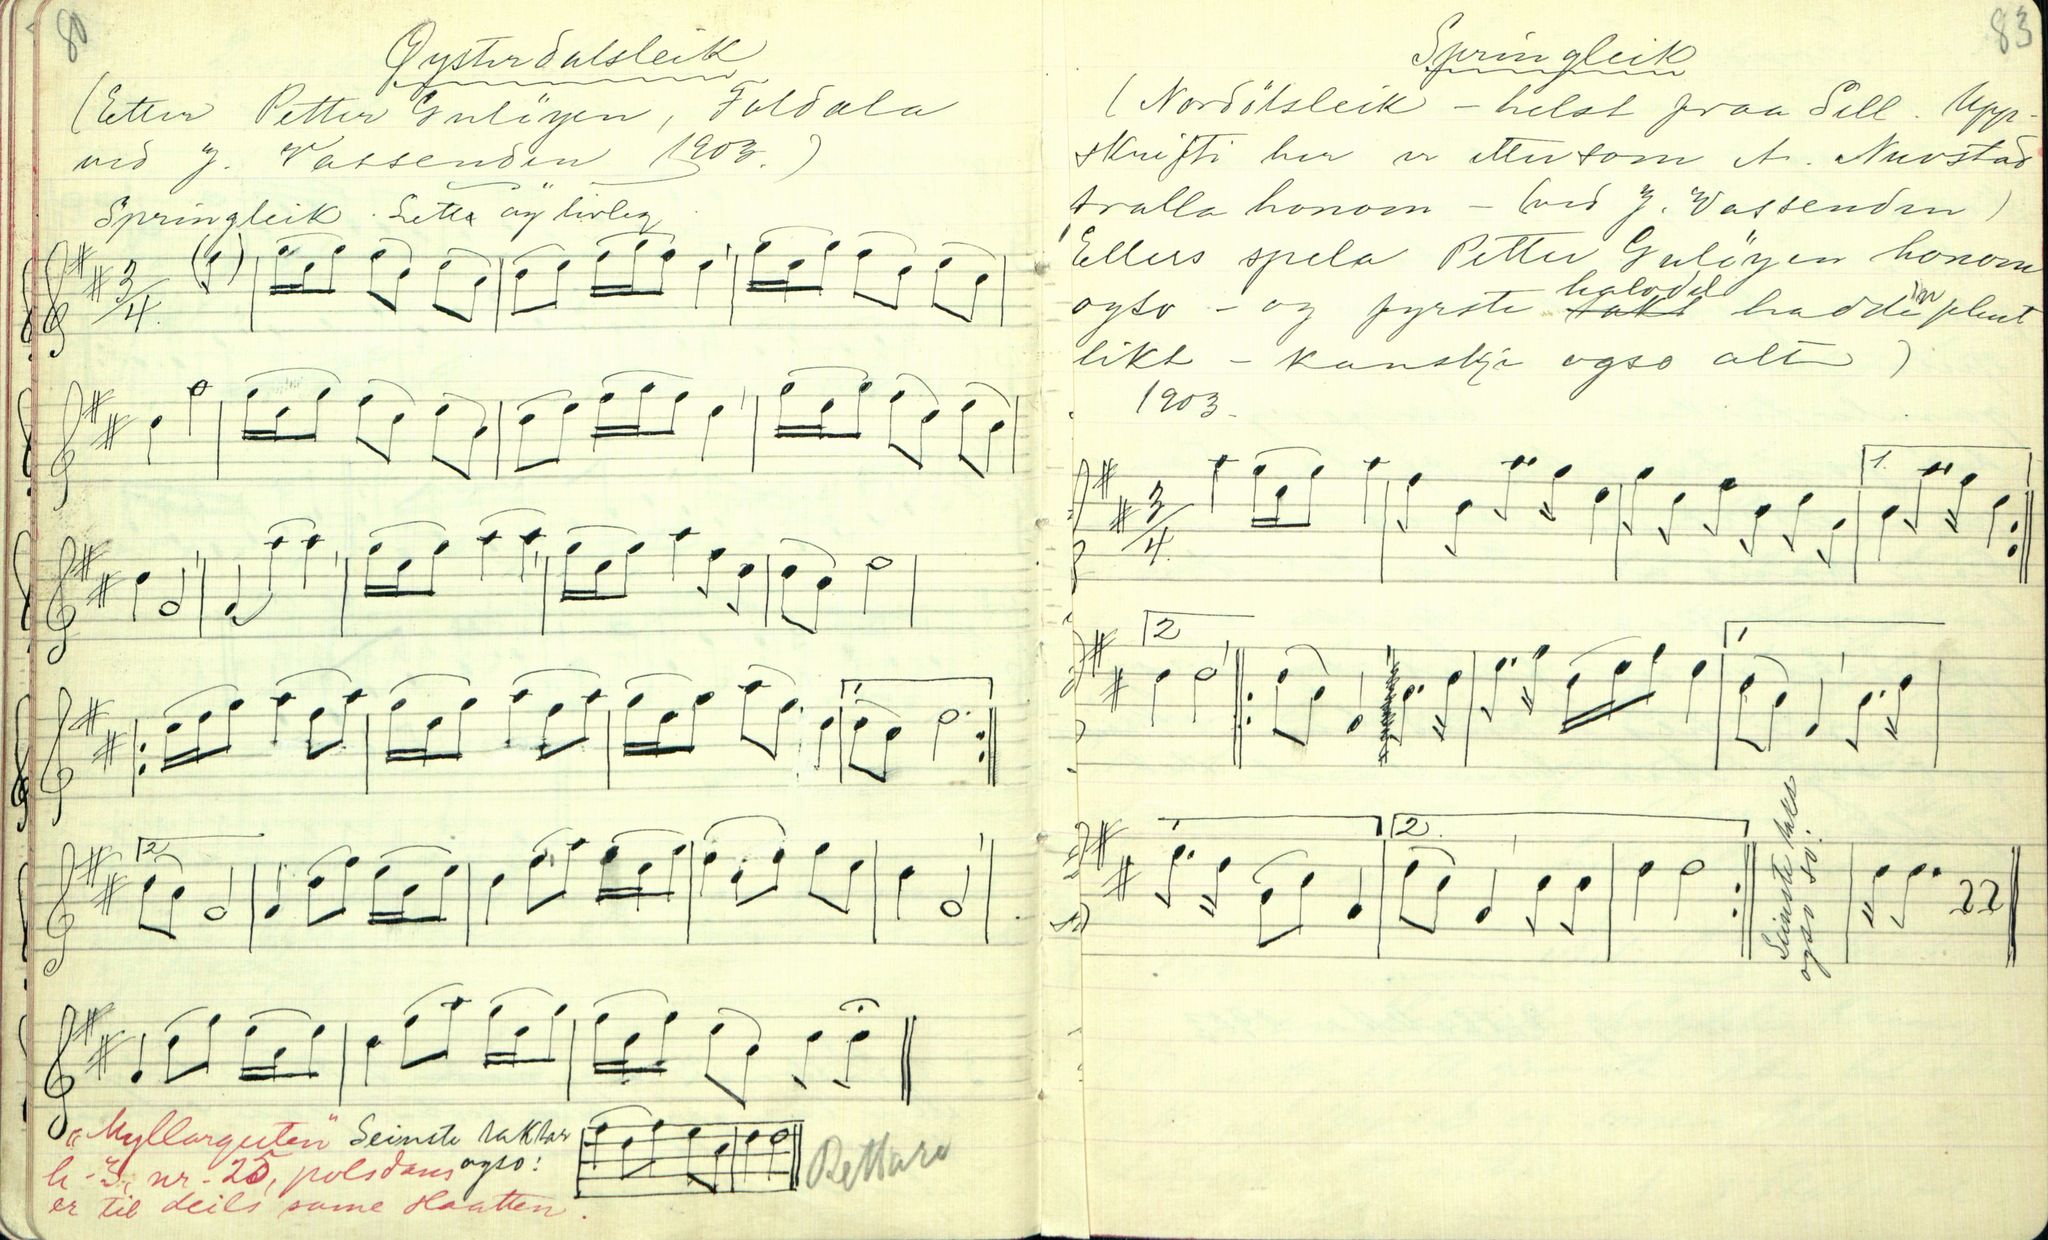 80
Øysterdalsleik
(Etter Petter Gulöyen, Foldala
ved J. Vassenden 1903.)
Springleik. Lett og livleg
3/4
1
2
"Myllarguten"
h-3, nr-25, polsdans
er til deils same slaatten.
Seinste taktar
ogso:
83
Springleik
(Nordölsleik - helst fraa Sell. Upp-
skrifti her er etter som A. Nurstad
tralla honom - (ved J. Vassenden)
Ellers spela Petter Gulöyen honom
ogso - og fyrste halvdel hadde 'n plent
likt - kanskje ogso alt)
1903.
3/4
1.
2
1
1
2.
Seinste takt
ogso so: